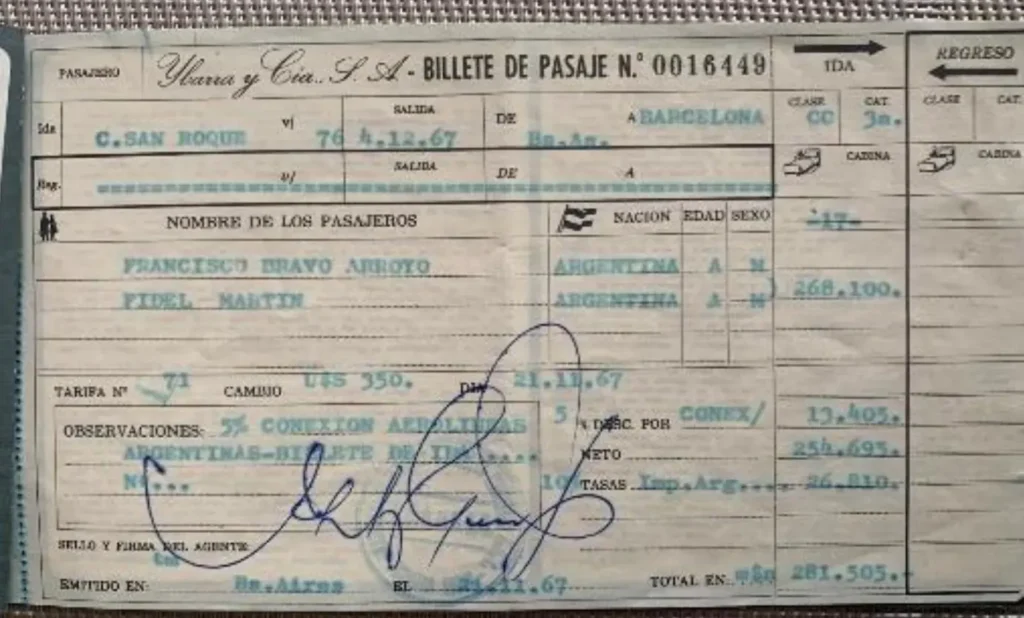 PASAJERO Ybarra y Cia. S. A. - BILLETE DE PASAJE N.º 0016449 IDA REGRESO
Ida C. SAN ROQUE v/ 76 SALIDA 4.12.67 DE Bs.As. A BARCELONA CLASE CC CAT. 3a. CLASE CAT.
Reg. v/ SALIDA DE A CABINA CABINA
NOMBRE DE LOS PASAJEROS NACION EDAD SEXO -17-
FRANCISCO BRAVO ARROYO ARGENTINA A M
FIDEL MARTIN ARGENTINA A M ) 268.100.
TARIFA Nº 71 CAMBIO U$S 350. DIA 21.11.67
OBSERVACIONES: 5% CONEXION AEROLINEAS 5 % DESC. POR CONEX/ 13.405.
ARGENTINAS-BILLETE DE IDA.... NETO 254.695.
Nº... 10% TASAS Imp.Arg.... 26.810.
SELLO Y FIRMA DEL AGENTE:
EMITIDO EN: Bs.Aires EL 21.11.67 TOTAL EN: m$n 281.505.-